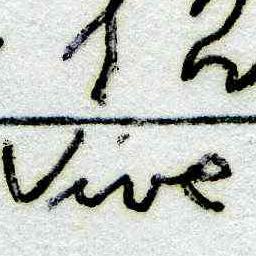 12
Vive